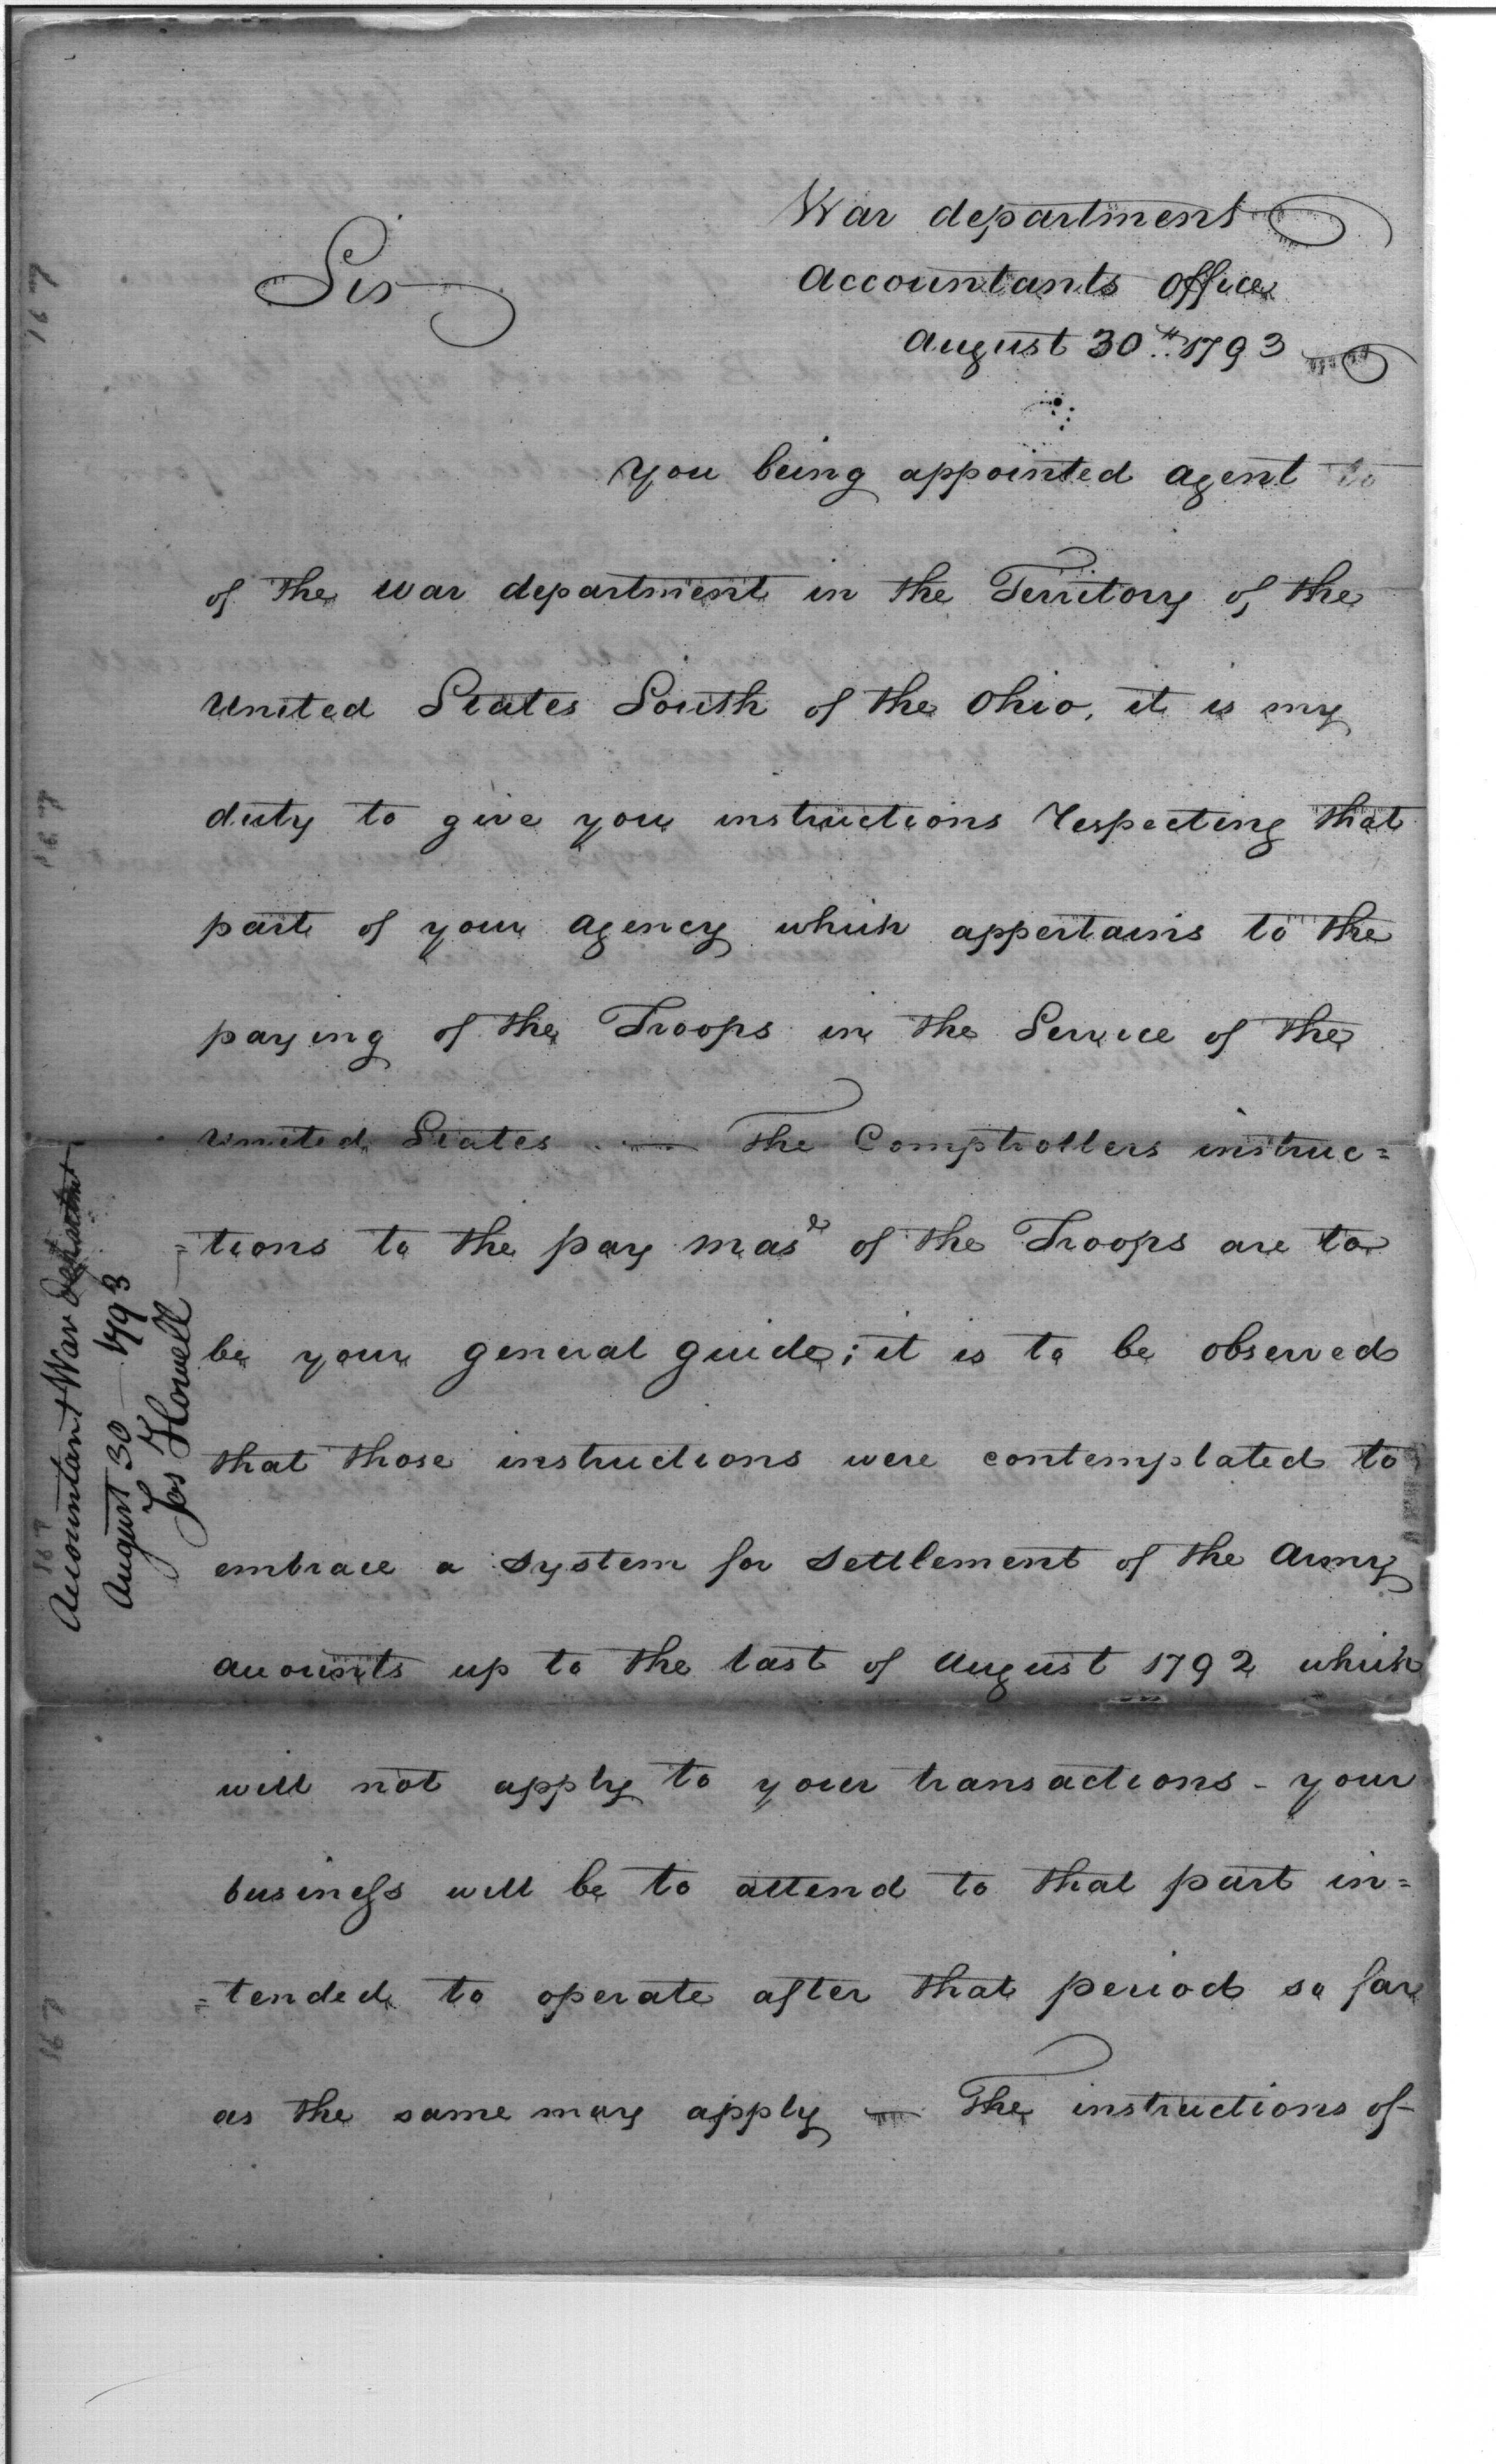 War department
Accountants office
August 30th 1793
Sir
You being appointed agent to
of the War department in the Territory of the
United States South of the Ohio, it is my
duty to give you instructions respecting that
part of your agency which appertains to the
paying of the Troops in the Service of the
United States. — The Comptrollers instruc=
=tions to the pay masr of the Troops are to
be your general guide; it is to be observed
that those instructions were contemplated to
embrace a System for Settlement of the Army
accounts up to the last of August 1792 which
will not apply to your transactions - your
business will be to attend to that part in=
=tended to operate after that period so far
as the same may apply — The instructions of
Accountant War Department
August 30 1793
Jos Howell